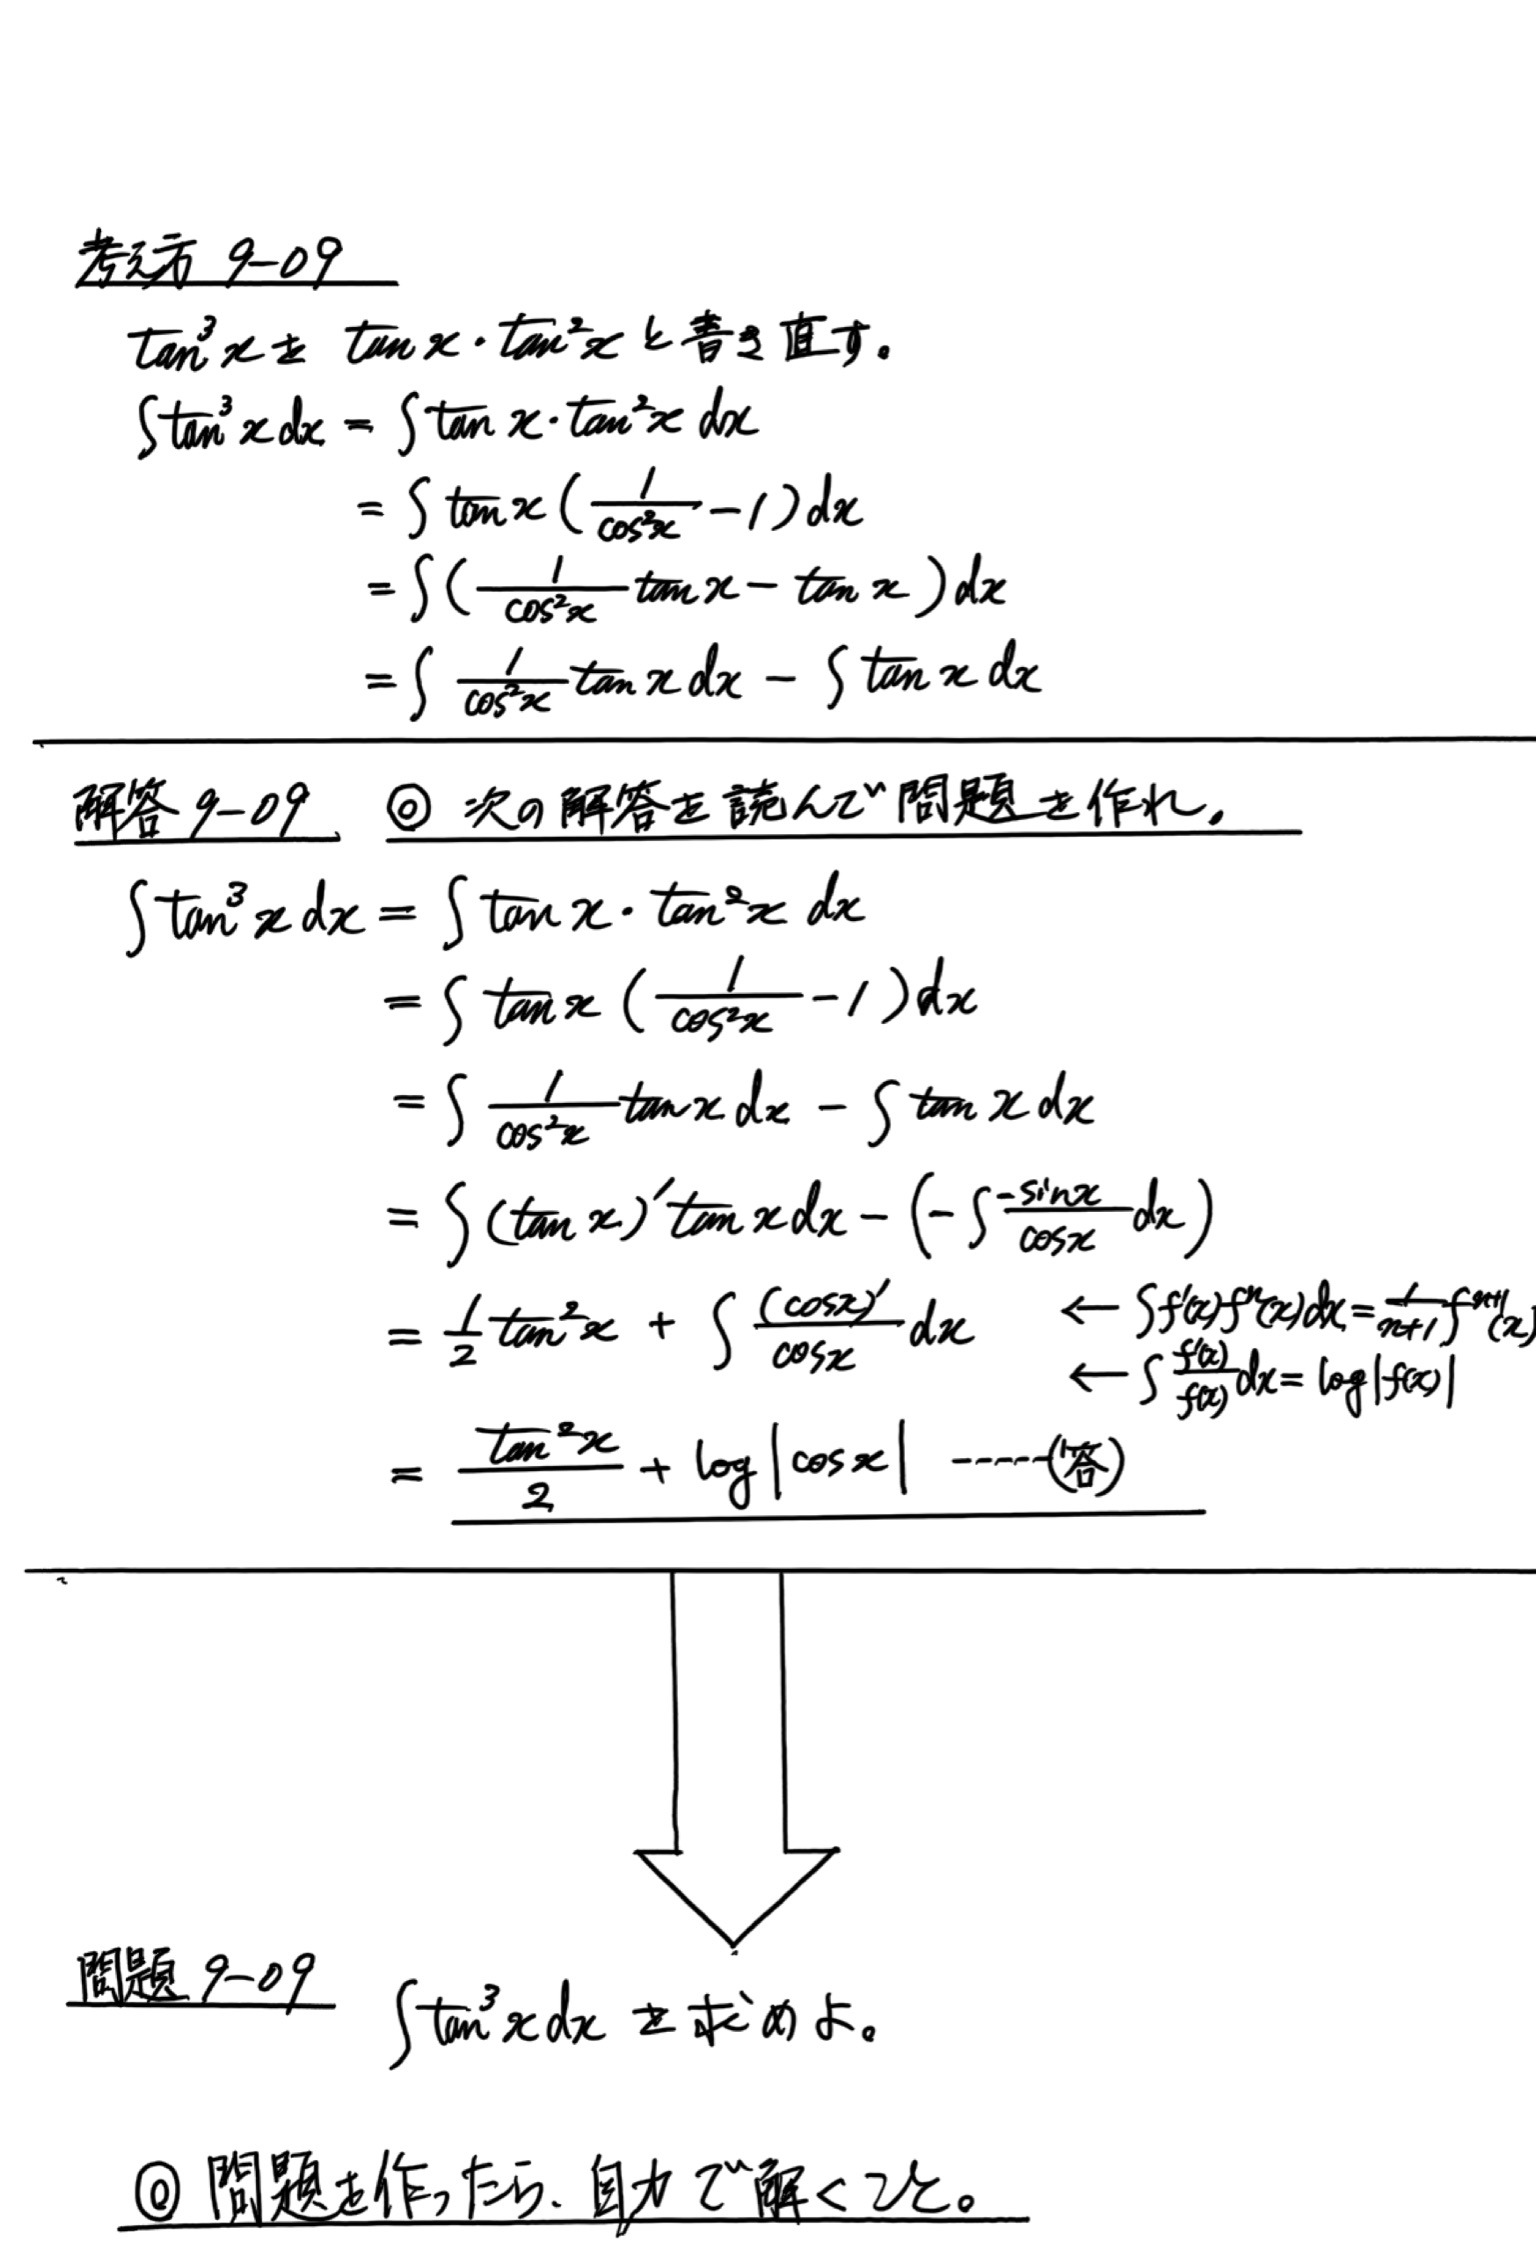 考え方 9-09
tan³x を tan x・tan²x と書き直す。
∫tan³x dx = ∫tan x・tan²x dx
= ∫ tan x (1/cos²x - 1) dx
= ∫ (1/cos²x tan x - tan x) dx
= ∫ 1/cos²x tan x dx - ∫ tan x dx
解答 9-09 ◎ 次の解答を読んで問題を作れ.
∫ tan³x dx = ∫ tan x・tan²x dx
= ∫ tan x (1/cos²x - 1) dx
= ∫ 1/cos²x tan x dx - ∫ tan x dx
= ∫ (tan x)' tan x dx - (-∫ -sin x/cos x dx)
= 1/2 tan²x + ∫ (cos x)'/cos x dx ← ∫f'(x)fⁿ(x)dx = 1/n+1 fⁿ⁺¹(x)
← ∫ f'(x)/f(x) dx = log|f(x)|
= tan²x/2 + log|cos x| ------(答)
問題 9-09 ∫tan³x dx を求めよ。
◎ 問題を作ったら、自力で解くこと。